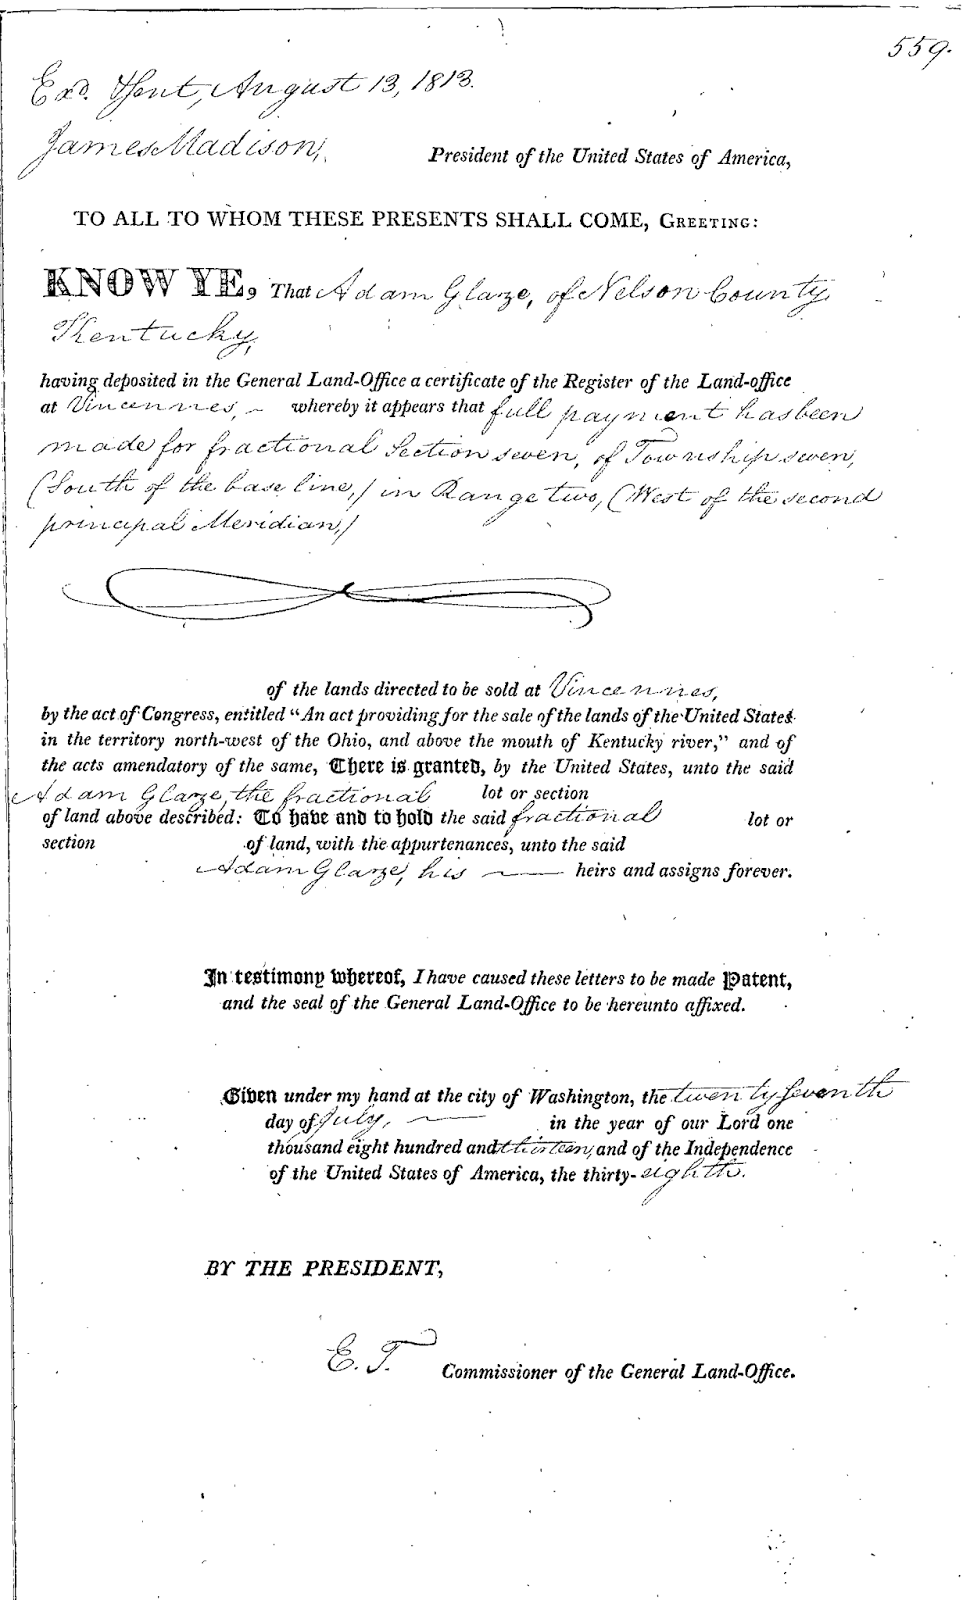 559.
Exd. & Sent, August 13, 1813.
James Madison, President of the United States of America,
TO ALL TO WHOM THESE PRESENTS SHALL COME, GREETING:
KNOW YE, That Adam Glaze, of Nelson County
Kentucky,
having deposited in the General Land-Office a certificate of the Register of the Land-office
at Vincennes, whereby it appears that full payment has been
made for fractional Section seven, of Township seven,
(South of the base line,) in Range two, (West of the second
principal Meridian,)
of the lands directed to be sold at Vincennes,
by the act of Congress, entitled “An act providing for the sale of the lands of the United States
in the territory north-west of the Ohio, and above the mouth of Kentucky river,” and of
the acts amendatory of the same, There is granted, by the United States, unto the said
Adam Glaze, the fractional lot or section
of land above described: To have and to hold the said fractional lot or
section of land, with the appurtenances, unto the said
Adam Glaze, his heirs and assigns forever.
In testimony whereof, I have caused these letters to be made Patent,
and the seal of the General Land-Office to be hereunto affixed.
Given under my hand at the city of Washington, the twenty seventh
day of July, in the year of our Lord one
thousand eight hundred and thirteen, and of the Independence
of the United States of America, the thirty-eighth.
BY THE PRESIDENT,
E. T. Commissioner of the General Land-Office.